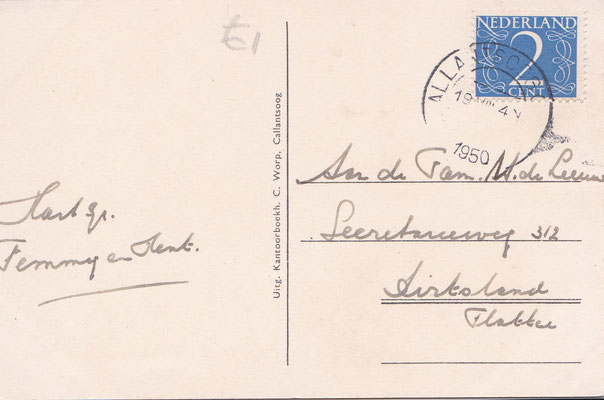 €1
NEDERLAND
2
CENT
19 VIII 4
1950
Hart gr.
Femmy en Henk.
Uitg. Kantoorboekh. C. Worp, Callantsoog
Aan de Fam. de Leeuw
Secretarieweg 312
Dirksland
Flakkee